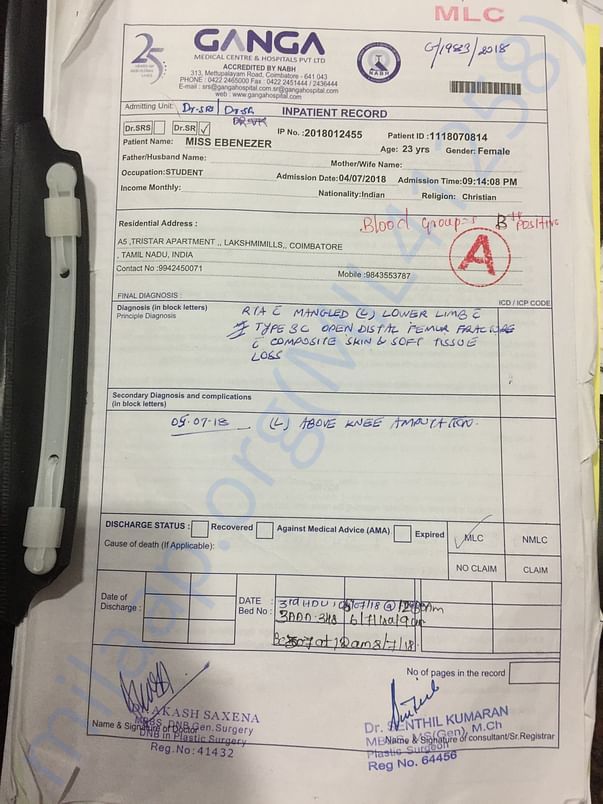 MLC
25
GANGA
MEDICAL CENTRE & HOSPITALS PVT LTD
ACCREDITED BY NABH
313, Mettupalayam Road, Coimbatore - 641 043
PHONE : 0422 2465000 Fax : 0422 2451444 / 2436444
E-mail : srs@gangahospital.com,sr@gangahospital.com
web : www.gangahospital.com
NABH
G/1983/2018
Admitting Unit: Dr.SRS Dr.SR
INPATIENT RECORD
Dr.SRS Dr.SR ✓
IP No. :2018012455 Patient ID :1118070814
Patient Name: MISS EBENEZER Age: 23 yrs Gender: Female
Father/Husband Name: Mother/Wife Name:
Occupation:STUDENT Admission Date:04/07/2018 Admission Time:09:14:08 PM
Income Monthly: Nationality:Indian Religion: Christian
Blood group B positive
Residential Address :
A5 ,TRISTAR APARTMENT ,, LAKSHMIMILLS,, COIMBATORE
, TAMIL NADU, INDIA
A
Contact No :9942450071 Mobile :9843553787
FINAL DIAGNOSIS : ICD / ICP CODE
Diagnosis (in block letters)
Principle Diagnosis
RTA C MANGLED (L) LOWER LIMB C
TYPE 3C OPEN DISTAL FEMUR FRACTURE
C COMPOSITE SKIN & SOFT TISSUE
LOSS
Secondary Diagnosis and complications
(in block letters)
05.07.18 (L) ABOVE KNEE AMPUTATION.
DISCHARGE STATUS : Recovered Against Medical Advice (AMA) Expired MLC NMLC
Cause of death (If Applicable):
NO CLAIM CLAIM
Date of
Discharge :
DATE
Bed No :
3rd HDU
6/7/18
No of pages in the record
AKASH SAXENA
MBBS, DNB Gen.Surgery
DNB in Plastic Surgery
Reg.No: 41432
Name & Signature of Doctor
Dr. SENTHIL KUMARAN
MBBS, MS(Gen), M.Ch
Name & Signature of consultant/Sr.Registrar
Plastic Surgeon
Reg No: 64456
milaap.org(MIL412258)